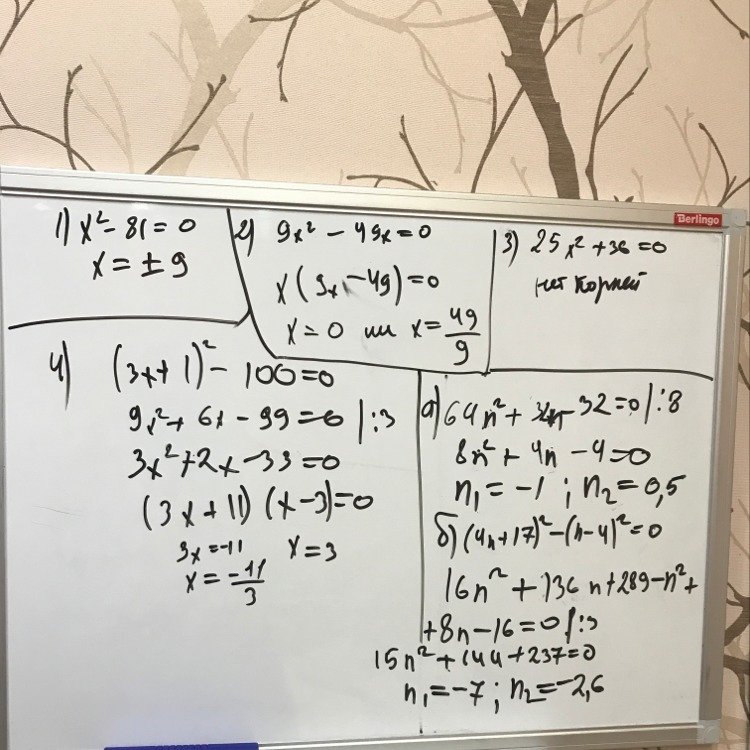 Berlingo
1) x² - 81 = 0
x = ± 9
2) 9x² - 49x = 0
x(9x - 49) = 0
x = 0 или x = 49/9
3) 25x² + 36 = 0
нет корней
4) (3x + 1)² - 100 = 0
9x² + 6x - 99 = 0 | :3
3x² + 2x - 33 = 0
(3x + 11)(x - 3) = 0
3x = -11 x = 3
x = -11/3
а) 64n² + 32n - 32 = 0 | :8
8n² + 4n - 4 = 0
n₁ = -1 ; n₂ = 0,5
б) (4n + 17)² - (n - 4)² = 0
16n² + 136n + 289 - n² +
+ 8n - 16 = 0 | :3
15n² + 144 + 237 = 0
n₁ = -7 ; n₂ = -2,6